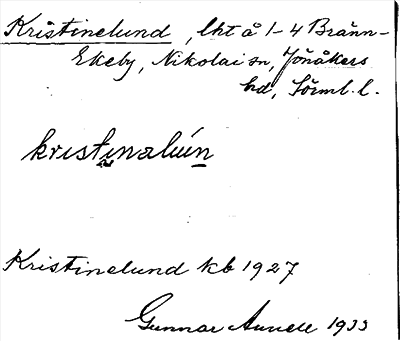 Kristinelund, lht å 1-4 Bränn-
Ekeby, Nikolai sn, Jönåkers
hd, Sörml. l.
kristinalún
Kristinelund kb 1927
Gunnar Aunell 1933